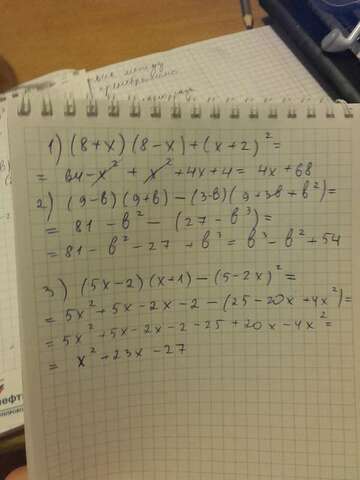 рые между
1) (8+x)(8-x)+(x+2)²=
= 64-x²+x²+4x+4= 4x+68
2) (9-в)(9+в)-(3-в)(9+3в+в²)=
= 81-в²-(27-в³)=
= 81-в²-27+в³= в³-в²+54
3) (5x-2)(x+1)-(5-2x)²=
= 5x²+5x-2x-2-(25-20x+4x²)=
= 5x²+5x-2x-2-25+20x-4x²=
= x²+23x-27